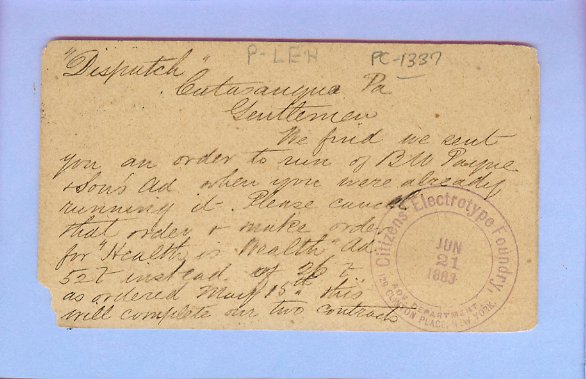 P-LEH PC-1337
"Dispatch"
Catasauqua Pa
Gentlemen
We find we sent
you an order to run of BW Payne
& Son's Ad when you were already
running it. Please cancel
that order & make order
for "Health is Wealth" Ad
52 t instead of 26 t
as ordered May 15th this
will complete our two contracts
Citizens' Electrotype Foundry,
JUN
21
1883
ADV. DEPARTMENT
CLINTON PLACE, NEW YORK.